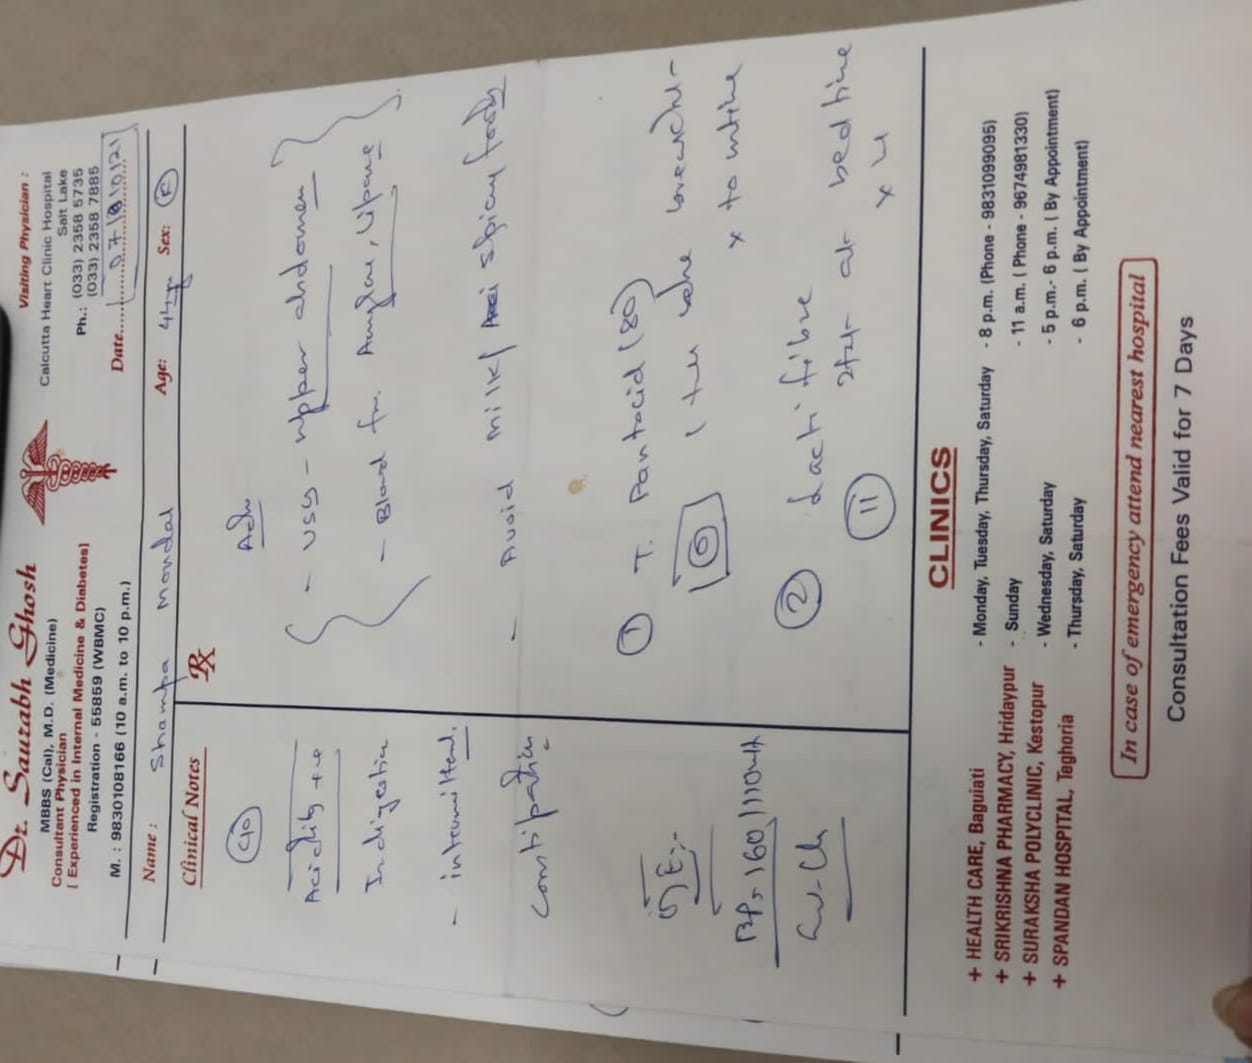 Dr. Saurabh Ghosh
MBBS (Cal), M.D. (Medicine)
Consultant Physician
[ Experienced in Internal Medicine & Diabetes]
Registration - 55859 (WBMC)
M. : 9830108166 (10 a.m. to 10 p.m.)
Visiting Physician :
Calcutta Heart Clinic Hospital
Salt Lake
Ph.: (033) 2358 5735
(033) 2358 7885
Date
Name : Shampa Mondal Age: 44yrs Sex: F
Clinical Notes
C/O
Acidity +ve
Indigestion
- intermittent
Constipation
O/E:-
BP- 160/110
Rx
Adv
- USG - upper abdomen
- Blood for Amylase, Lipase
- Avoid milk/ spicy foods
1 T. Pantacid (80)
1 tab before breakfast
x 1 mthe
2 Lactifibre
at bed time
11
CLINICS
+ HEALTH CARE, Baguiati - Monday, Tuesday, Thursday, Saturday - 8 p.m. (Phone - 9831099095)
+ SRIKRISHNA PHARMACY, Hridaypur - Sunday - 11 a.m. ( Phone - 9674981330)
+ SURAKSHA POLYCLINIC, Kestopur - Wednesday, Saturday - 5 p.m.- 6 p.m. ( By Appointment)
+ SPANDAN HOSPITAL, Teghoria - Thursday, Saturday - 6 p.m. ( By Appointment)
In case of emergency attend nearest hospital
Consultation Fees Valid for 7 Days